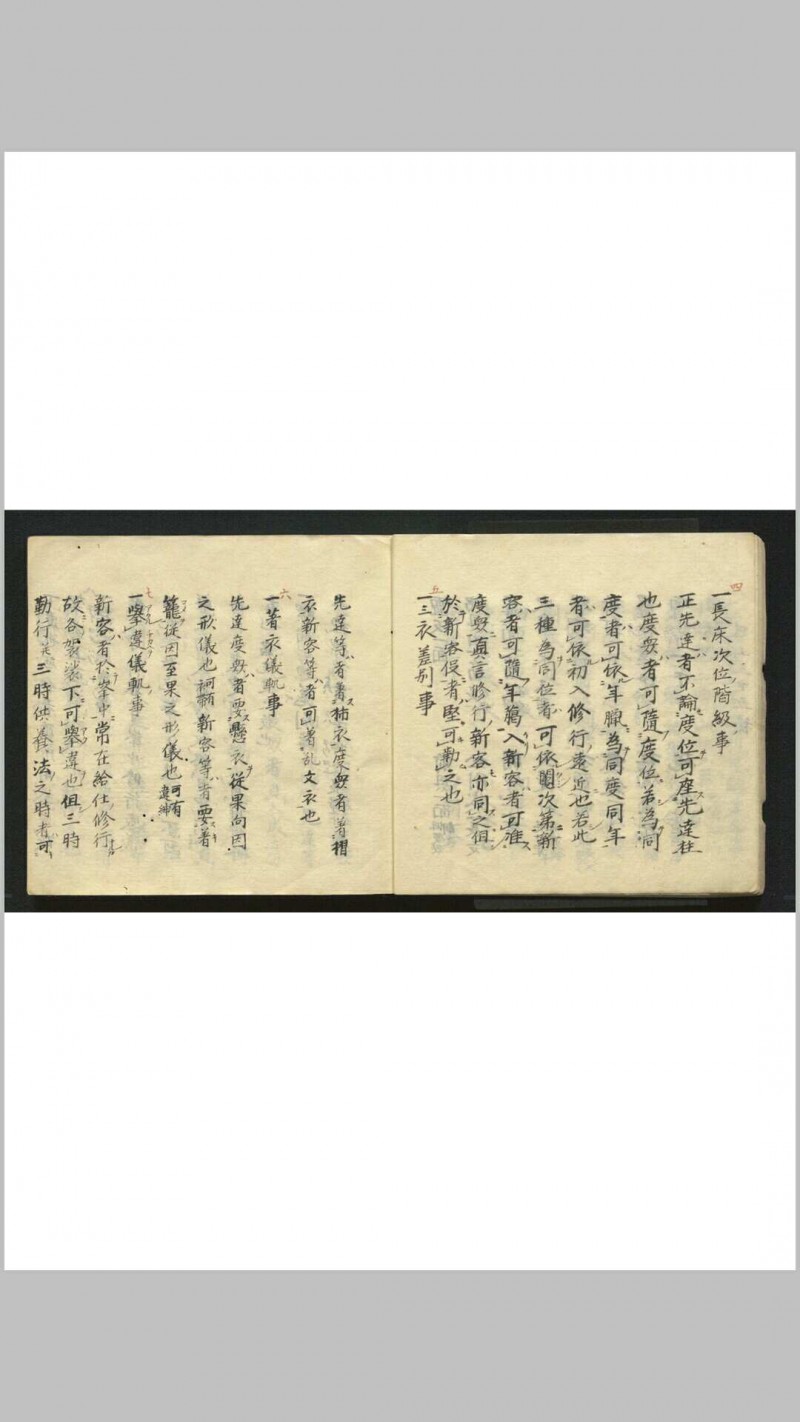 四
一長床次位階級事
正先達者不論度位可座先達柱
也度衆者可隨度位若為同
度者可依年臈為同度同年
者可依初入修行遠近也若此
三種為同位者可依閼次第新
客者可隨年﨟入新客者可准
度衆真言修行新客亦同之但
於新客役者堅可勤之也
五
一三衣差別事
先達等者著柿衣度衆者著摺
衣新客等者可著乱文衣也
六
一著衣儀軌事
先達度衆者要懸衣從果向因
之形儀也祠頼新客等者要著
籠從因至果之形儀也
七
一擧違儀軌事
新客者於峯中常在給仕修行
故谷袈裟下可擧違也但三時
勤行 三時供養法之時者可